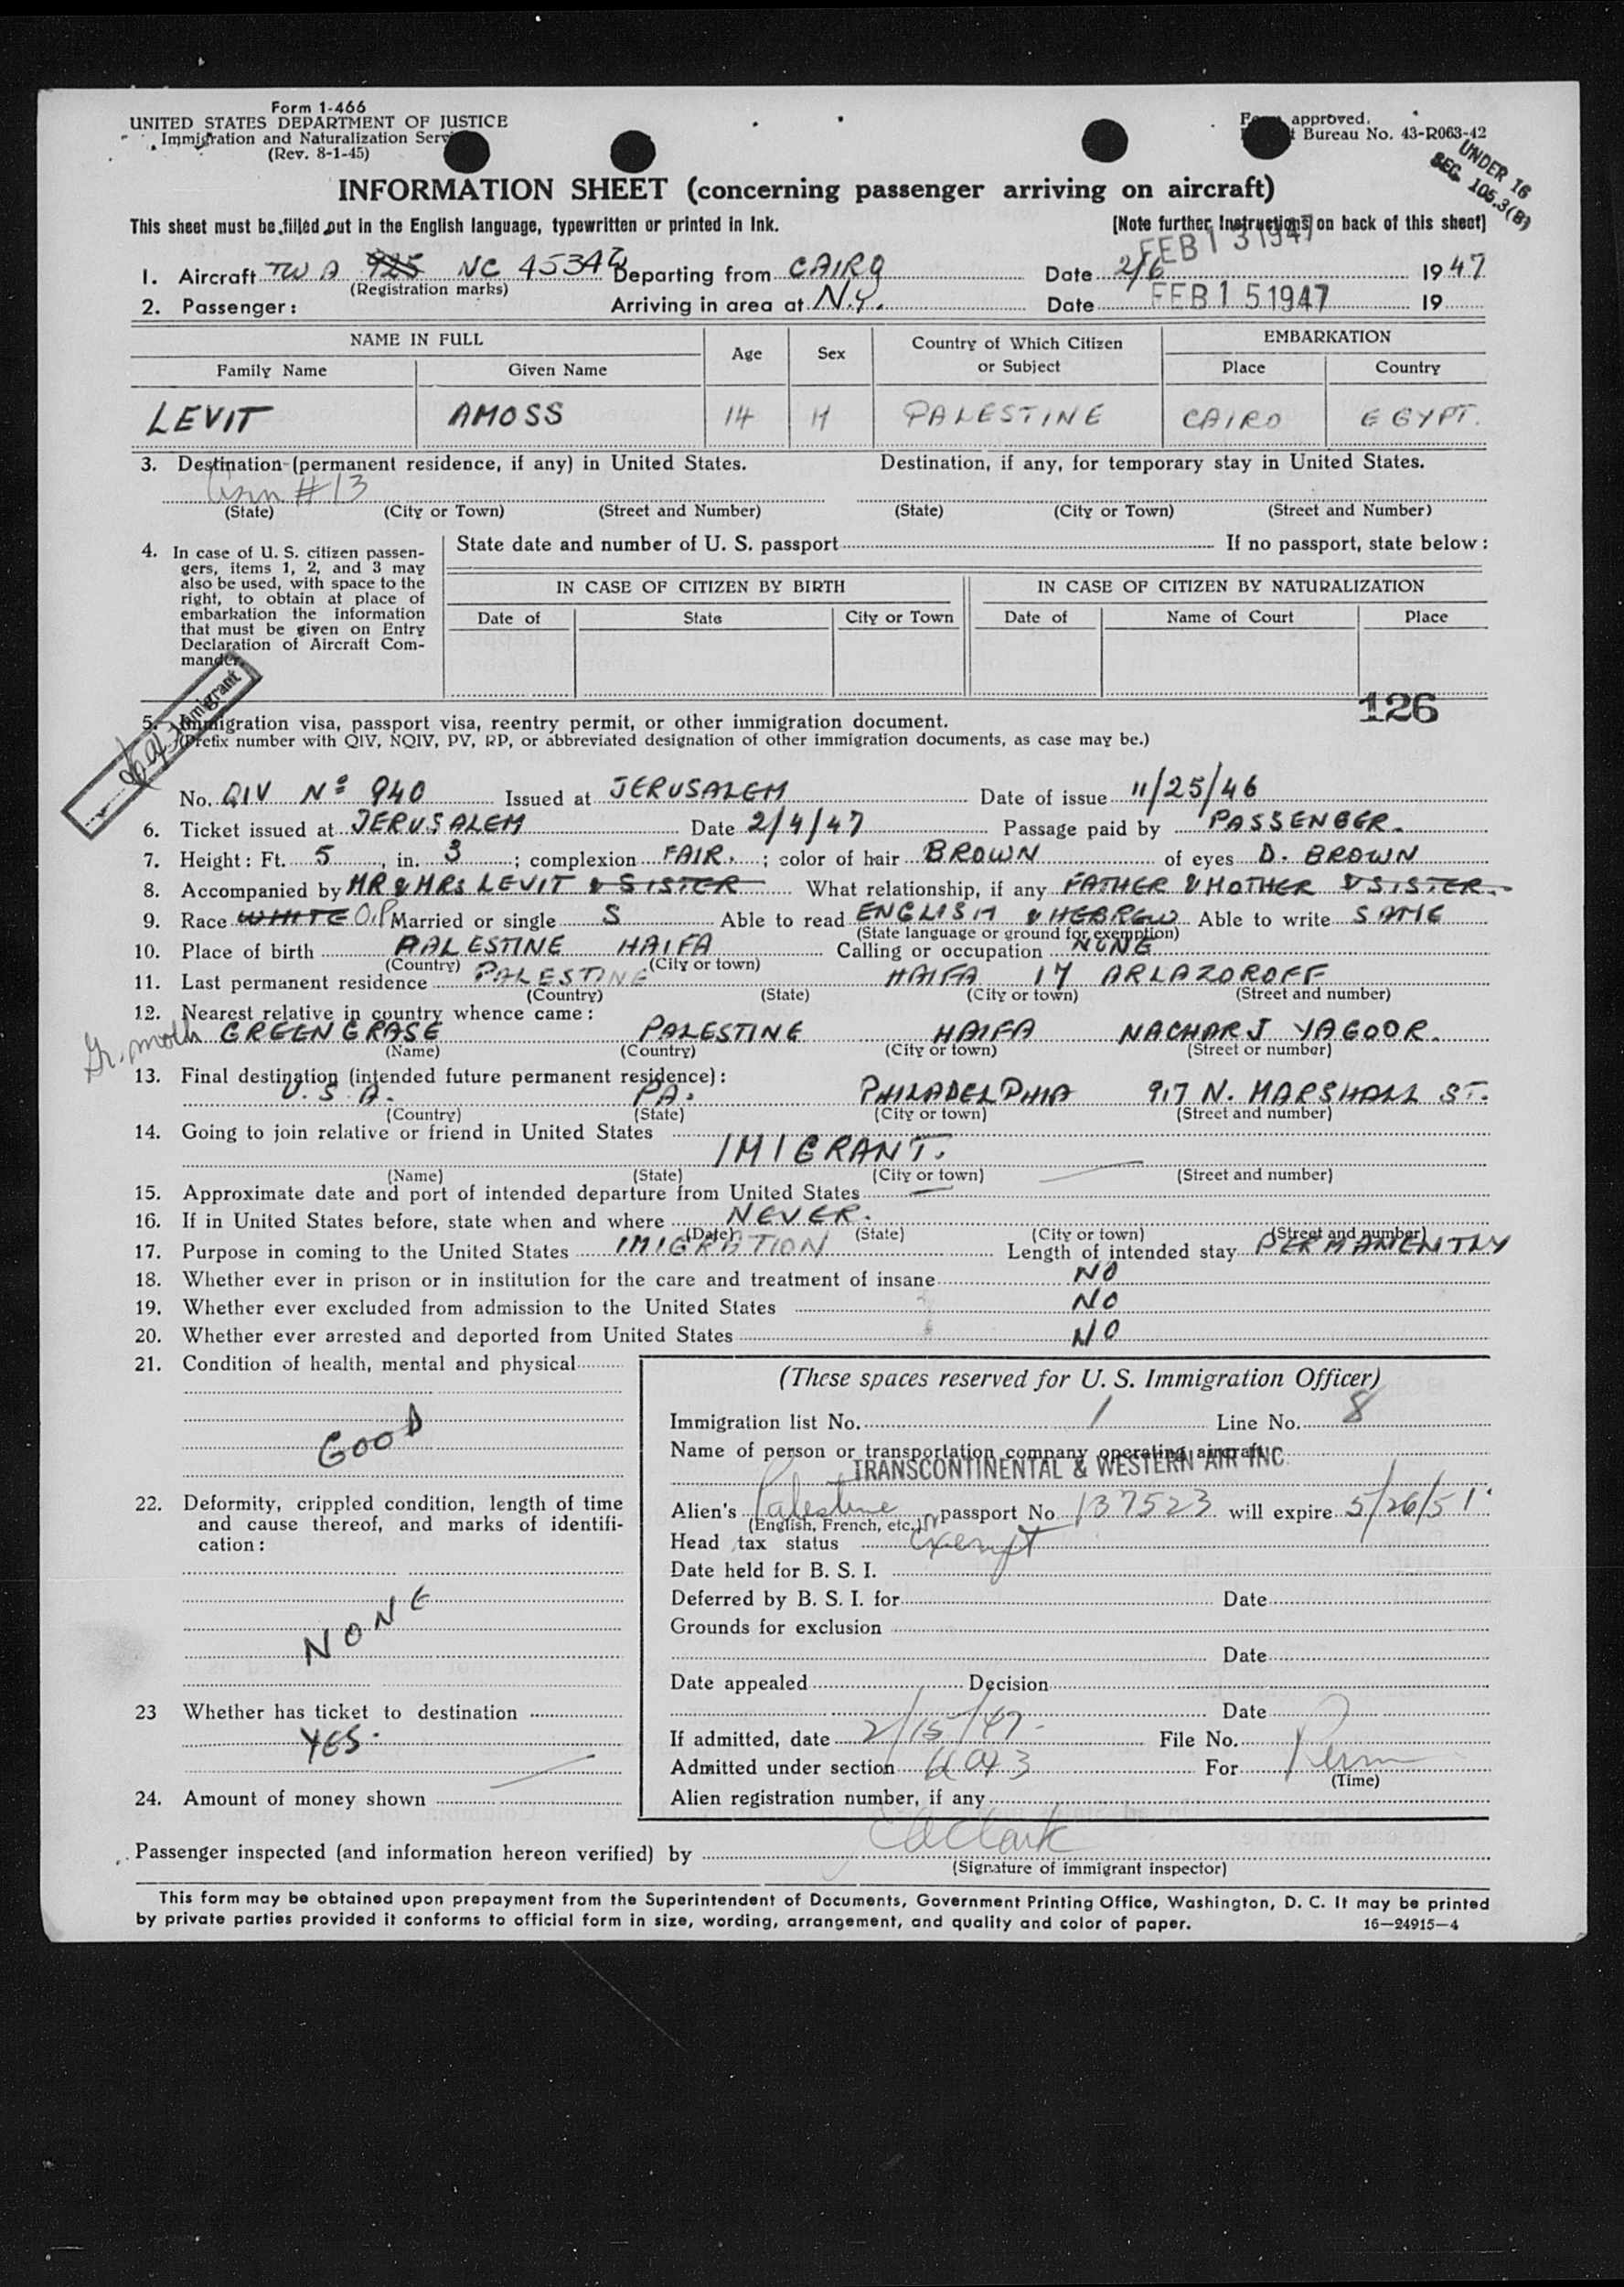 Form 1-466
UNITED STATES DEPARTMENT OF JUSTICE
Immigration and Naturalization Serv
(Rev. 8-1-45)
approved.
Bureau No. 43-R063-42
UNDER 16
SEC. 105.3(B)
INFORMATION SHEET (concerning passenger arriving on aircraft)
This sheet must be filled out in the English language, typewritten or printed in ink. (Note further Instructions on back of this sheet)
FEB 13 1947
1. Aircraft TWA 925 NC 45342 Departing from CAIRO Date 2/6 1947
(Registration marks)
2. Passenger: Arriving in area at N.Y. Date FEB 15 1947 19
NAME IN FULL Age Sex Country of Which Citizen or Subject EMBARKATION
Family Name Given Name Place Country
LEVIT AMOSS 14 M PALESTINE CAIRO EGYPT.
3. Destination (permanent residence, if any) in United States. Destination, if any, for temporary stay in United States.
#13
(State) (City or Town) (Street and Number) (State) (City or Town) (Street and Number)
4. In case of U. S. citizen passen-
gers, items 1, 2, and 3 may
also be used, with space to the
right, to obtain at place of
embarkation the information
that must be given on Entry
Declaration of Aircraft Com-
mander.
State date and number of U. S. passport If no passport, state below:
IN CASE OF CITIZEN BY BIRTH IN CASE OF CITIZEN BY NATURALIZATION
Date of State City or Town Date of Name of Court Place
126
Immigrant
5. Immigration visa, passport visa, reentry permit, or other immigration document.
(Prefix number with QIV, NQIV, PV, RP, or abbreviated designation of other immigration documents, as case may be.)
No. QIV Nº 940 Issued at JERUSALEM Date of issue 11/25/46
6. Ticket issued at JERUSALEM Date 2/4/47 Passage paid by PASSENGER.
7. Height: Ft. 5, in. 3; complexion FAIR.; color of hair BROWN of eyes D. BROWN
8. Accompanied by MR & MRS LEVIT & SISTER What relationship, if any FATHER & MOTHER & SISTER.
9. Race WHITE Married or single S Able to read ENGLISH & HEBREW Able to write SAME
(State language or ground for exemption)
10. Place of birth PALESTINE HAIFA Calling or occupation NONE
(Country) (City or town)
11. Last permanent residence PALESTINE HAIFA 17 ARLAZOROFF
(Country) (State) (City or town) (Street and number)
12. Nearest relative in country whence came:
Gr. moth GREENGRASE PALESTINE HAIFA NACHARJ YAGOOR.
(Name) (Country) (City or town) (Street or number)
13. Final destination (intended future permanent residence):
U.S.A. PA. PHILADELPHIA 917 N. MARSHALL ST.
(Country) (State) (City or town) (Street and number)
14. Going to join relative or friend in United States
IMIGRANT.
(Name) (State) (City or town) (Street and number)
15. Approximate date and port of intended departure from United States
16. If in United States before, state when and where NEVER.
(Date) (State) (City or town) (Street and number)
17. Purpose in coming to the United States IMIGRATION Length of intended stay PERMANENTLY
18. Whether ever in prison or in institution for the care and treatment of insane NO
19. Whether ever excluded from admission to the United States NO
20. Whether ever arrested and deported from United States NO
21. Condition of health, mental and physical
GOOD
22. Deformity, crippled condition, length of time
and cause thereof, and marks of identifi-
cation:
NONE
23 Whether has ticket to destination
YES.
24. Amount of money shown
(These spaces reserved for U. S. Immigration Officer)
Immigration list No. 1 Line No. 8
Name of person or transportation company operating aircraft
TRANSCONTINENTAL & WESTERN AIR INC.
Alien's Palestine passport No. 137523 will expire 5/26/51
(English, French, etc.)
Head tax status Exempt
Date held for B. S. I.
Deferred by B. S. I. for Date
Grounds for exclusion
Date
Date appealed Decision
Date
If admitted, date 2/15/47 File No.
Admitted under section For Perm
(Time)
Alien registration number, if any
Passenger inspected (and information hereon verified) by Clark
(Signature of immigrant inspector)
This form may be obtained upon prepayment from the Superintendent of Documents, Government Printing Office, Washington, D. C. It may be printed
by private parties provided it conforms to official form in size, wording, arrangement, and quality and color of paper. 16—24915-4